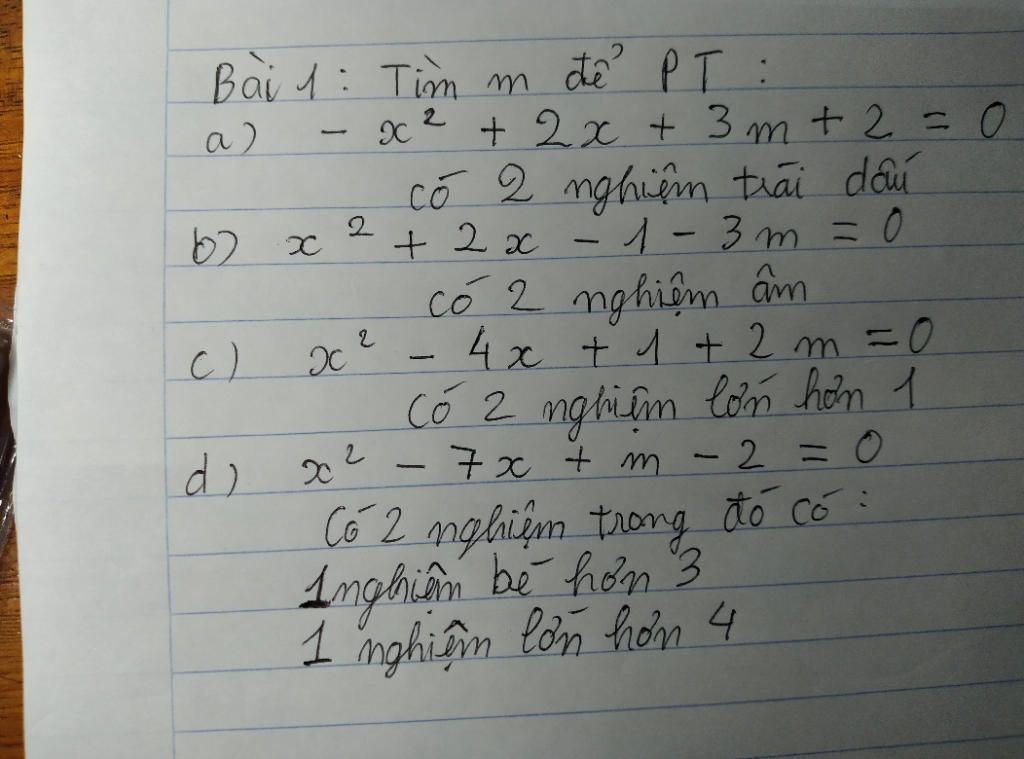 Bài 1 : Tìm m để PT :
a) - x² + 2x + 3m + 2 = 0
có 2 nghiệm trái dấu
b) x² + 2x - 1 - 3m = 0
có 2 nghiệm âm
c) x² - 4x + 1 + 2m = 0
có 2 nghiệm lớn hơn 1
d) x² - 7x + m - 2 = 0
Có 2 nghiệm trong đó có :
1 nghiệm bé hơn 3
1 nghiệm lớn hơn 4